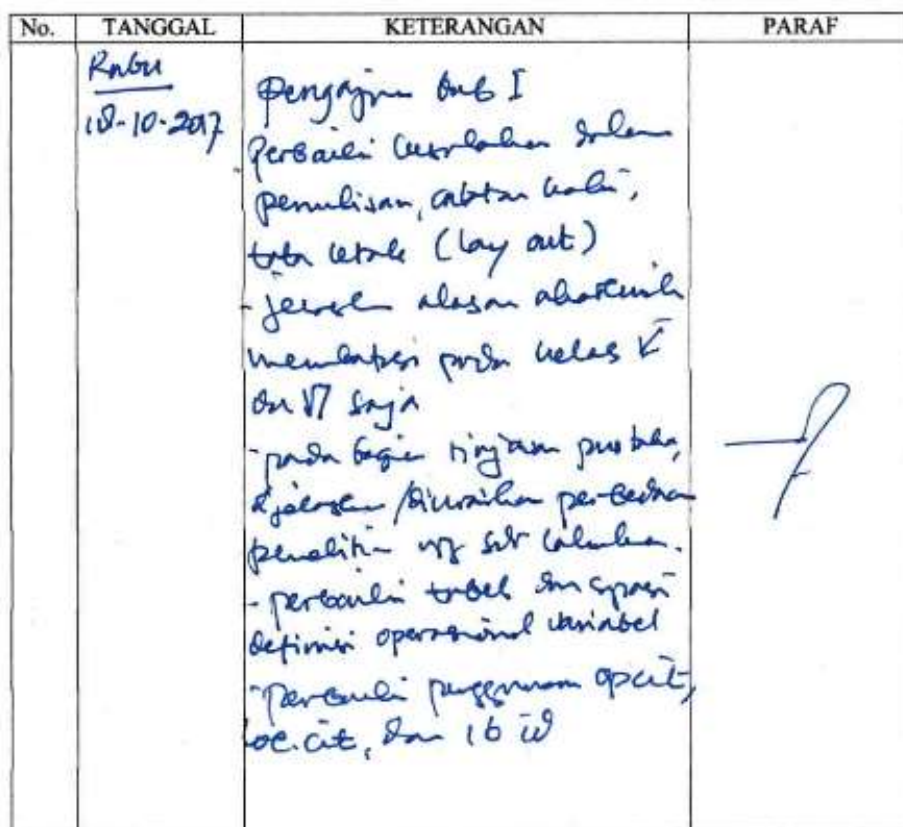 No. TANGGAL KETERANGAN PARAF
Rabu
18-10-2017
Pengajuan Bab I
Perbaiki kesalahan dalam
penulisan, catatan kaki,
tata letak (lay out)
- jelaskan alasan akademik
membatasi pada kelas V
dan VI saja
- pada bagian tinjauan pustaka,
dijelaskan/diuraikan perbedaan
penelitian yg sdr lakukan.
- perbaiki tabel dan
definisi operasional variabel
- perbaiki penggunaan opcit,
loc.cit, dan ibid